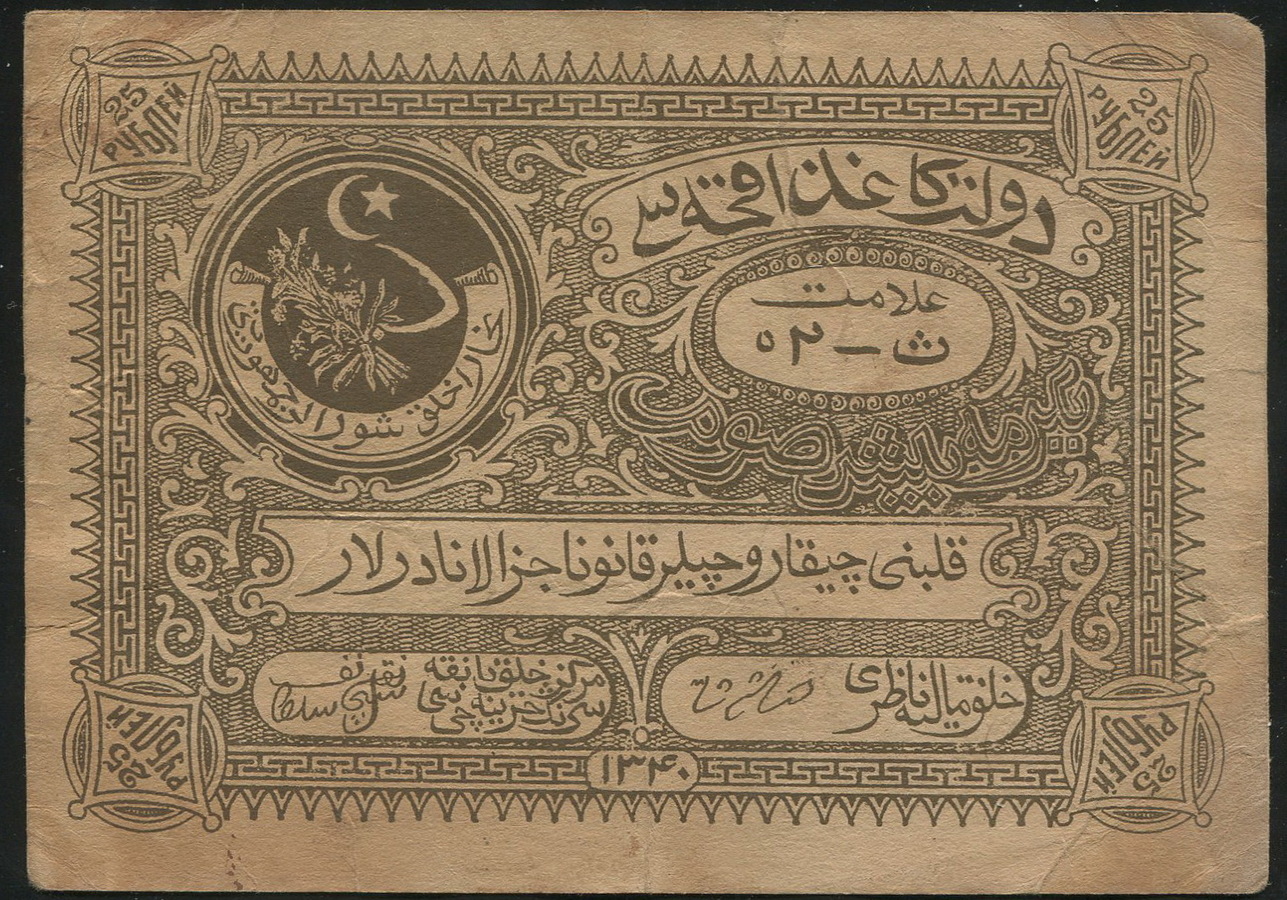 25 РУБЛЕЙ
25 РУБЛЕЙ
دولت کاغذ اقچه سی
علامت
ث — ۲۵
ییگرمه بیش صوم
بخارا خلق شورالر جمهوریتی
قلبنی چیقاروچیلر قانونا جزالانادرلار
خلق مالیه ناظری
مرکز خلق بانقه سی
نینک خزینه چی سی
۱۳۴۰
25 РУБЛЕЙ
25 РУБЛЕЙ